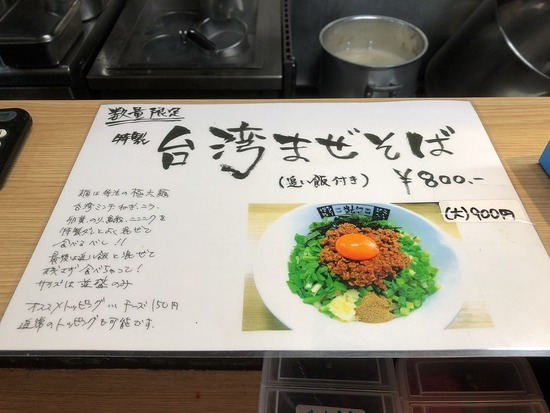 数量限定
特製
台湾まぜそば
(追い飯付き)
¥800.-
(大)900円
麺は特注の極太麺
台湾ミンチ、ねぎ、ニラ、
卵黄、のり、魚粉、ニンニクを
特製ダレとよく混ぜて
食べるべし!!
最後は追い飯を混ぜて
サイズは並盛のみ
オススメトッピング… チーズ150円
通常のトッピングも可能です。